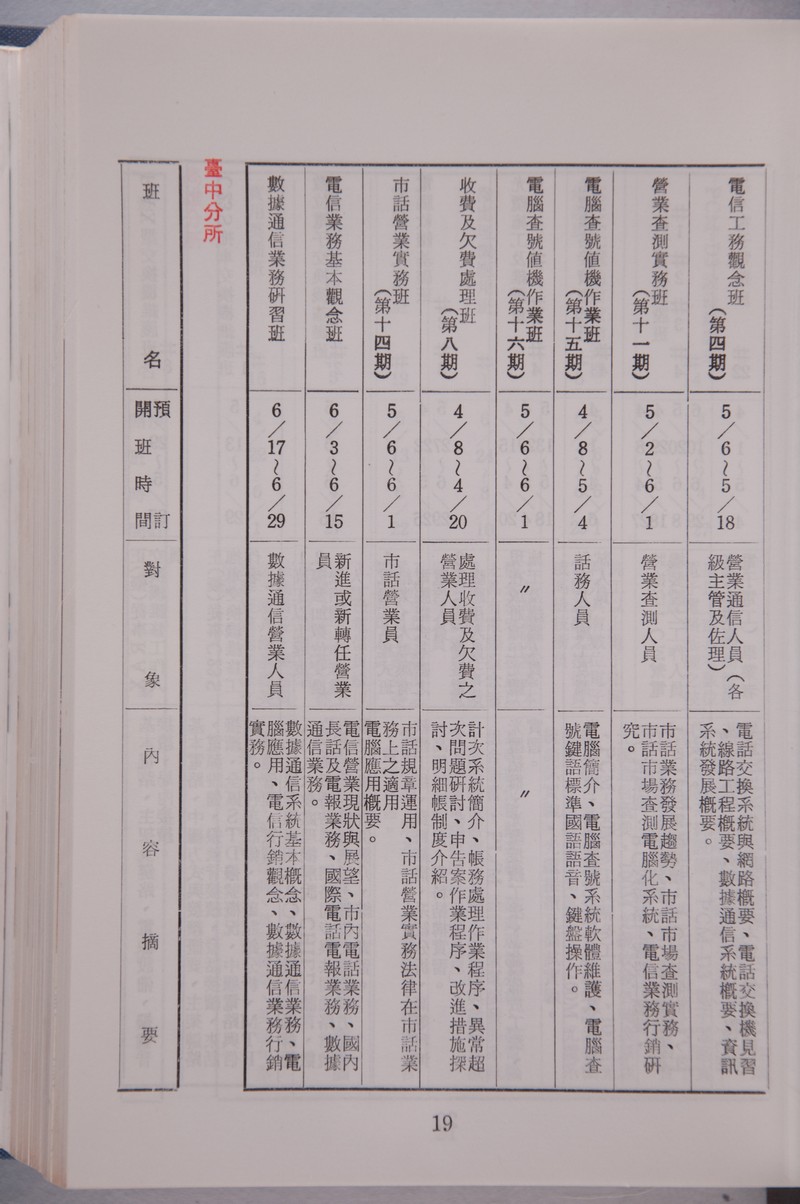 電信工務觀念班
(第四期)
5/6~5/18
營業通信人員(各
級主管及佐理)
電話交換系統與網路概要、電話交換機見習
、線路工程概要、數據通信系統概要、資訊
系統發展概要。
營業查測實務班
(第十一期)
5/2~6/1
營業查測人員
市話業務發展趨勢、市話市場查測實務、
市話市場查測電腦化系統、電信業務行銷研
究。
電腦查號值機作業班
(第十五期)
4/8~5/4
話務人員
電腦簡介、電腦查號系統軟體維護、電腦查
號鍵語標準國語語音、鍵盤操作。
電腦查號值機作業班
(第十六期)
5/6~6/1
〃
〃
收費及欠費處理班
(第八期)
4/8~4/20
處理收費及欠費之
營業人員
計次系統簡介、帳務處理作業程序、異常超
次問題研討、申告案作業程序、改進措施探
討、明細帳制度介紹。
市話營業實務班
(第十四期)
5/6~6/1
市話營業員
市話規章運用、市話營業實務法律在市話業
務上之適用
電腦應用概要。
電信業務基本觀念班
6/3~6/15
新進或新轉任營業
員
電信營業現狀與展望、市內電話業務、國內
長話及電報業務、國際電話電報業務、數據
通信業務。
數據通信業務研習班
6/17~6/29
數據通信營業人員
數據通信系統基本概念、數據通信業務、電
腦應用、電信行銷觀念、數據通信業務行銷
實務。
臺中分所
班名
預訂
開班時間
對象
內容摘要
19